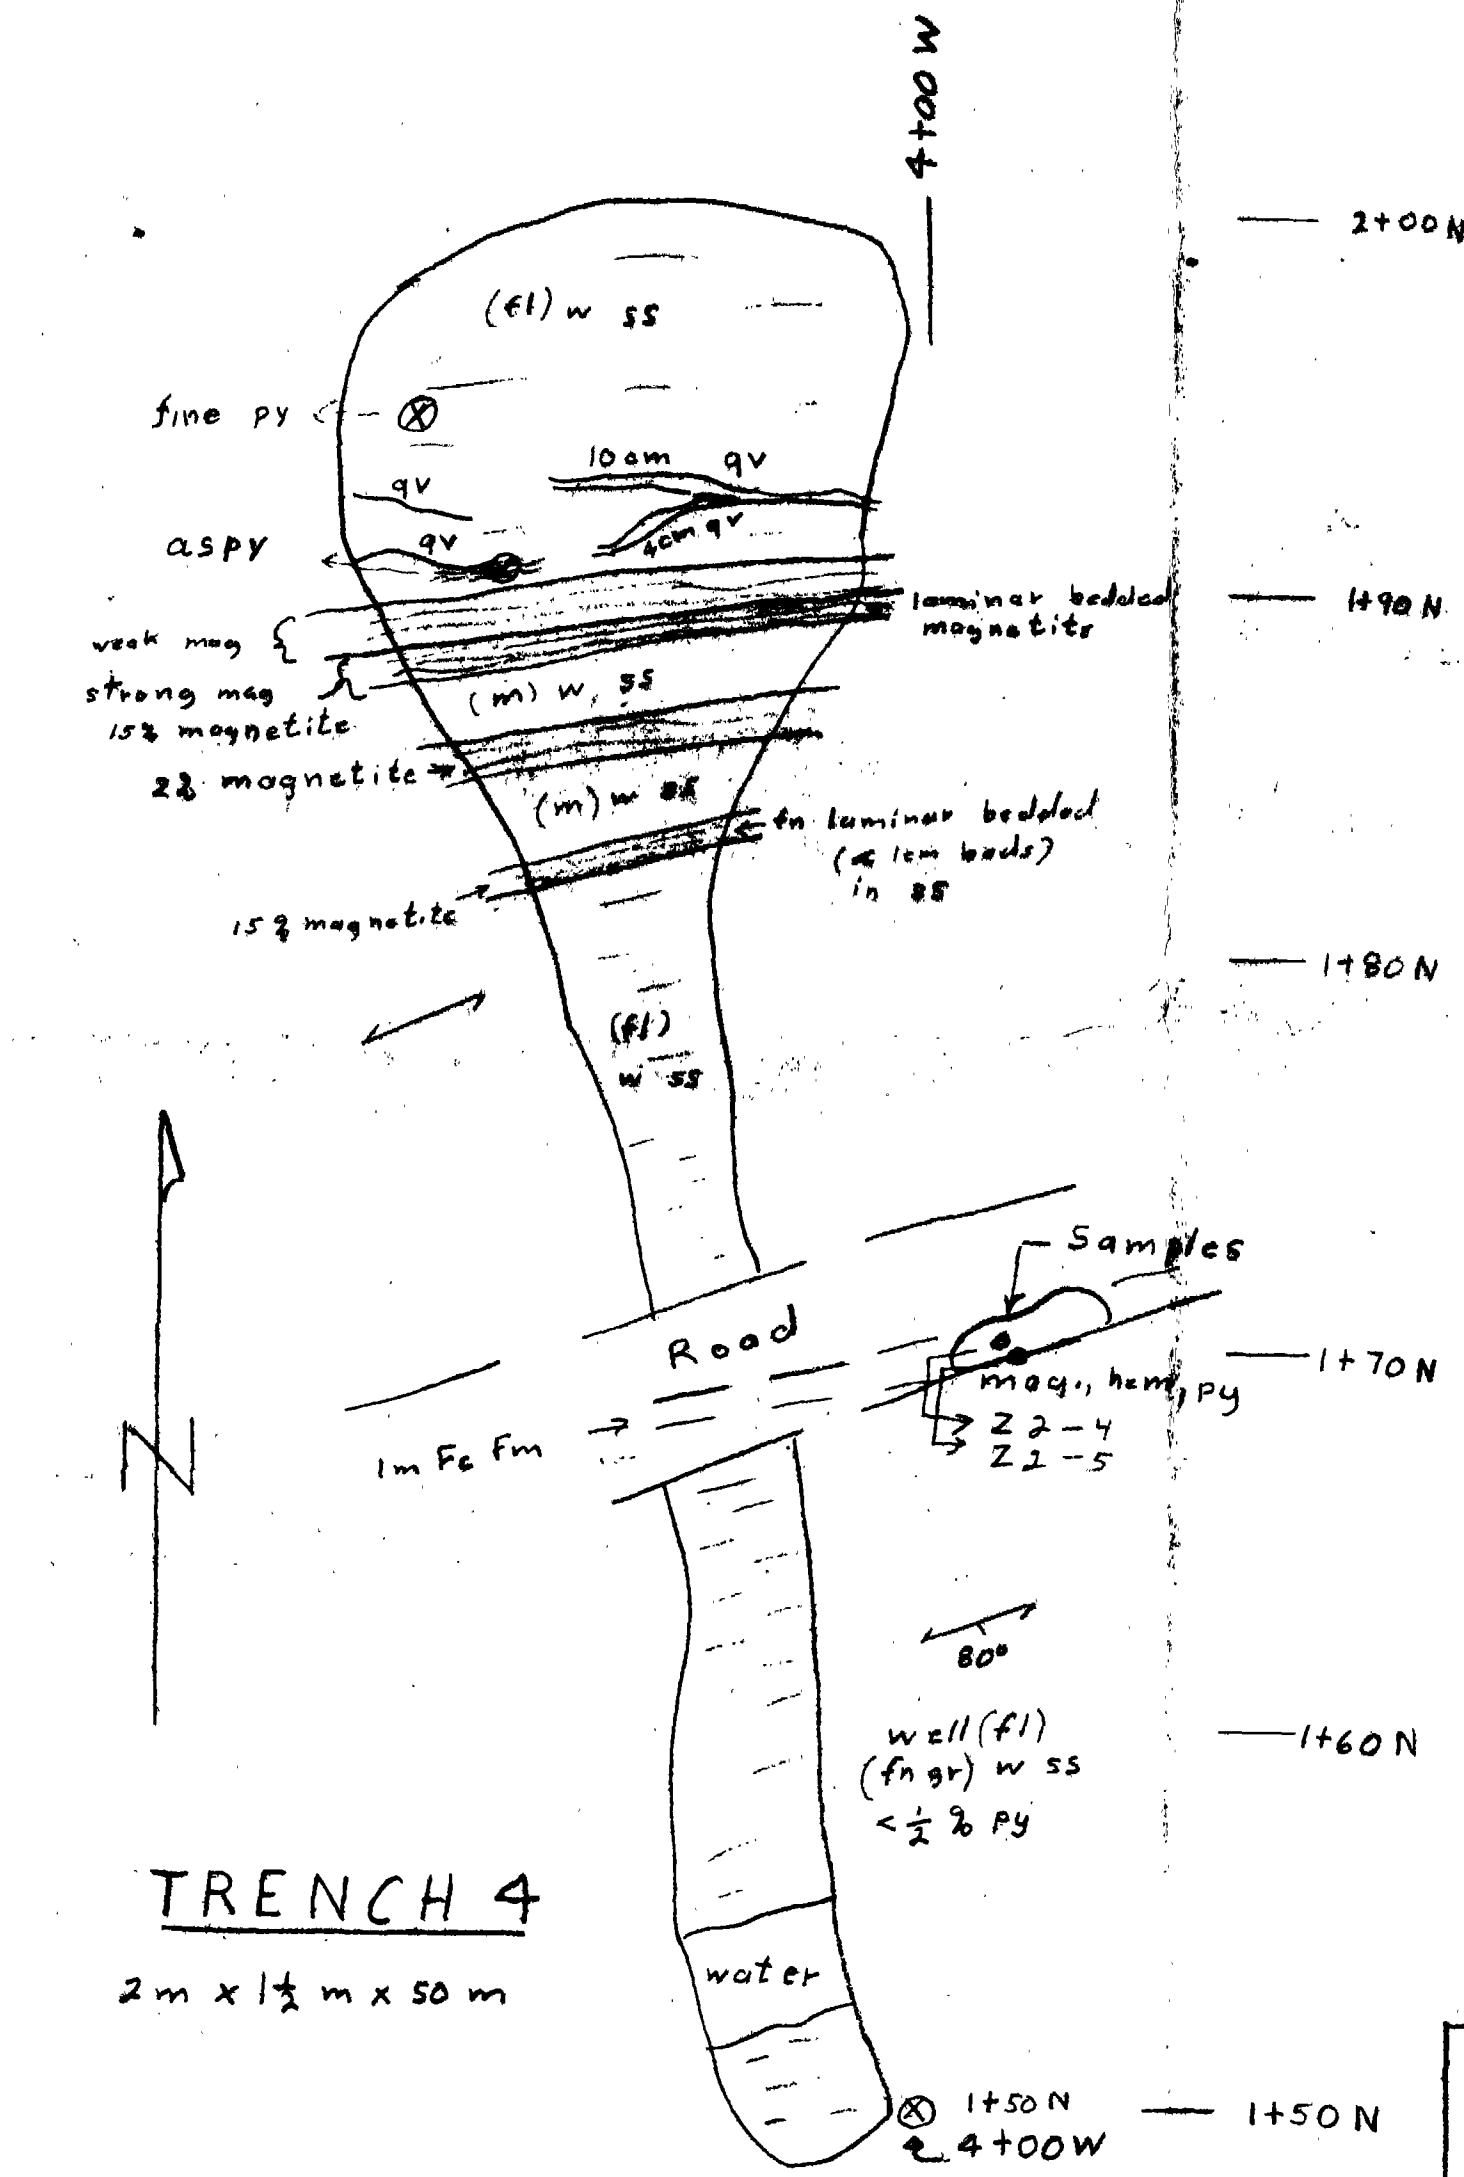 4+00 W
2+00 N
(fl) w ss
fine py
10 cm qv
qv
4cm qv
aspy
qv
1+90 N
laminar bedded
magnetite
weak mag
strong mag
15% magnetite
(m) w. ss
2% magnetite
(m) w ss
fn laminar bedded
(< 1cm beds)
in ss
15% magnetite
1+80 N
(fl)
w ss
Samples
Road
1+70 N
mag., hem, py
Z 2-4
Z 2-5
1m Fe Fm
N
80°
well (fl)
(fn gr) w ss
< ½ % py
1+60 N
TRENCH 4
2 m x 1½ m x 50 m
water
1+50 N
4+00 W
1+50 N